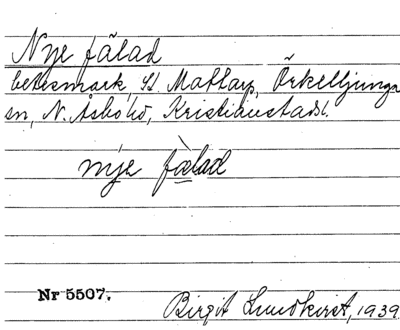 Nye fälad
betesmark, St. Mattarp, Örkelljunga
sn, N. Åsbo hd, Kristianstads l.
nye fàlad
Nr 5507.
Birgit Lundkvist, 1939.